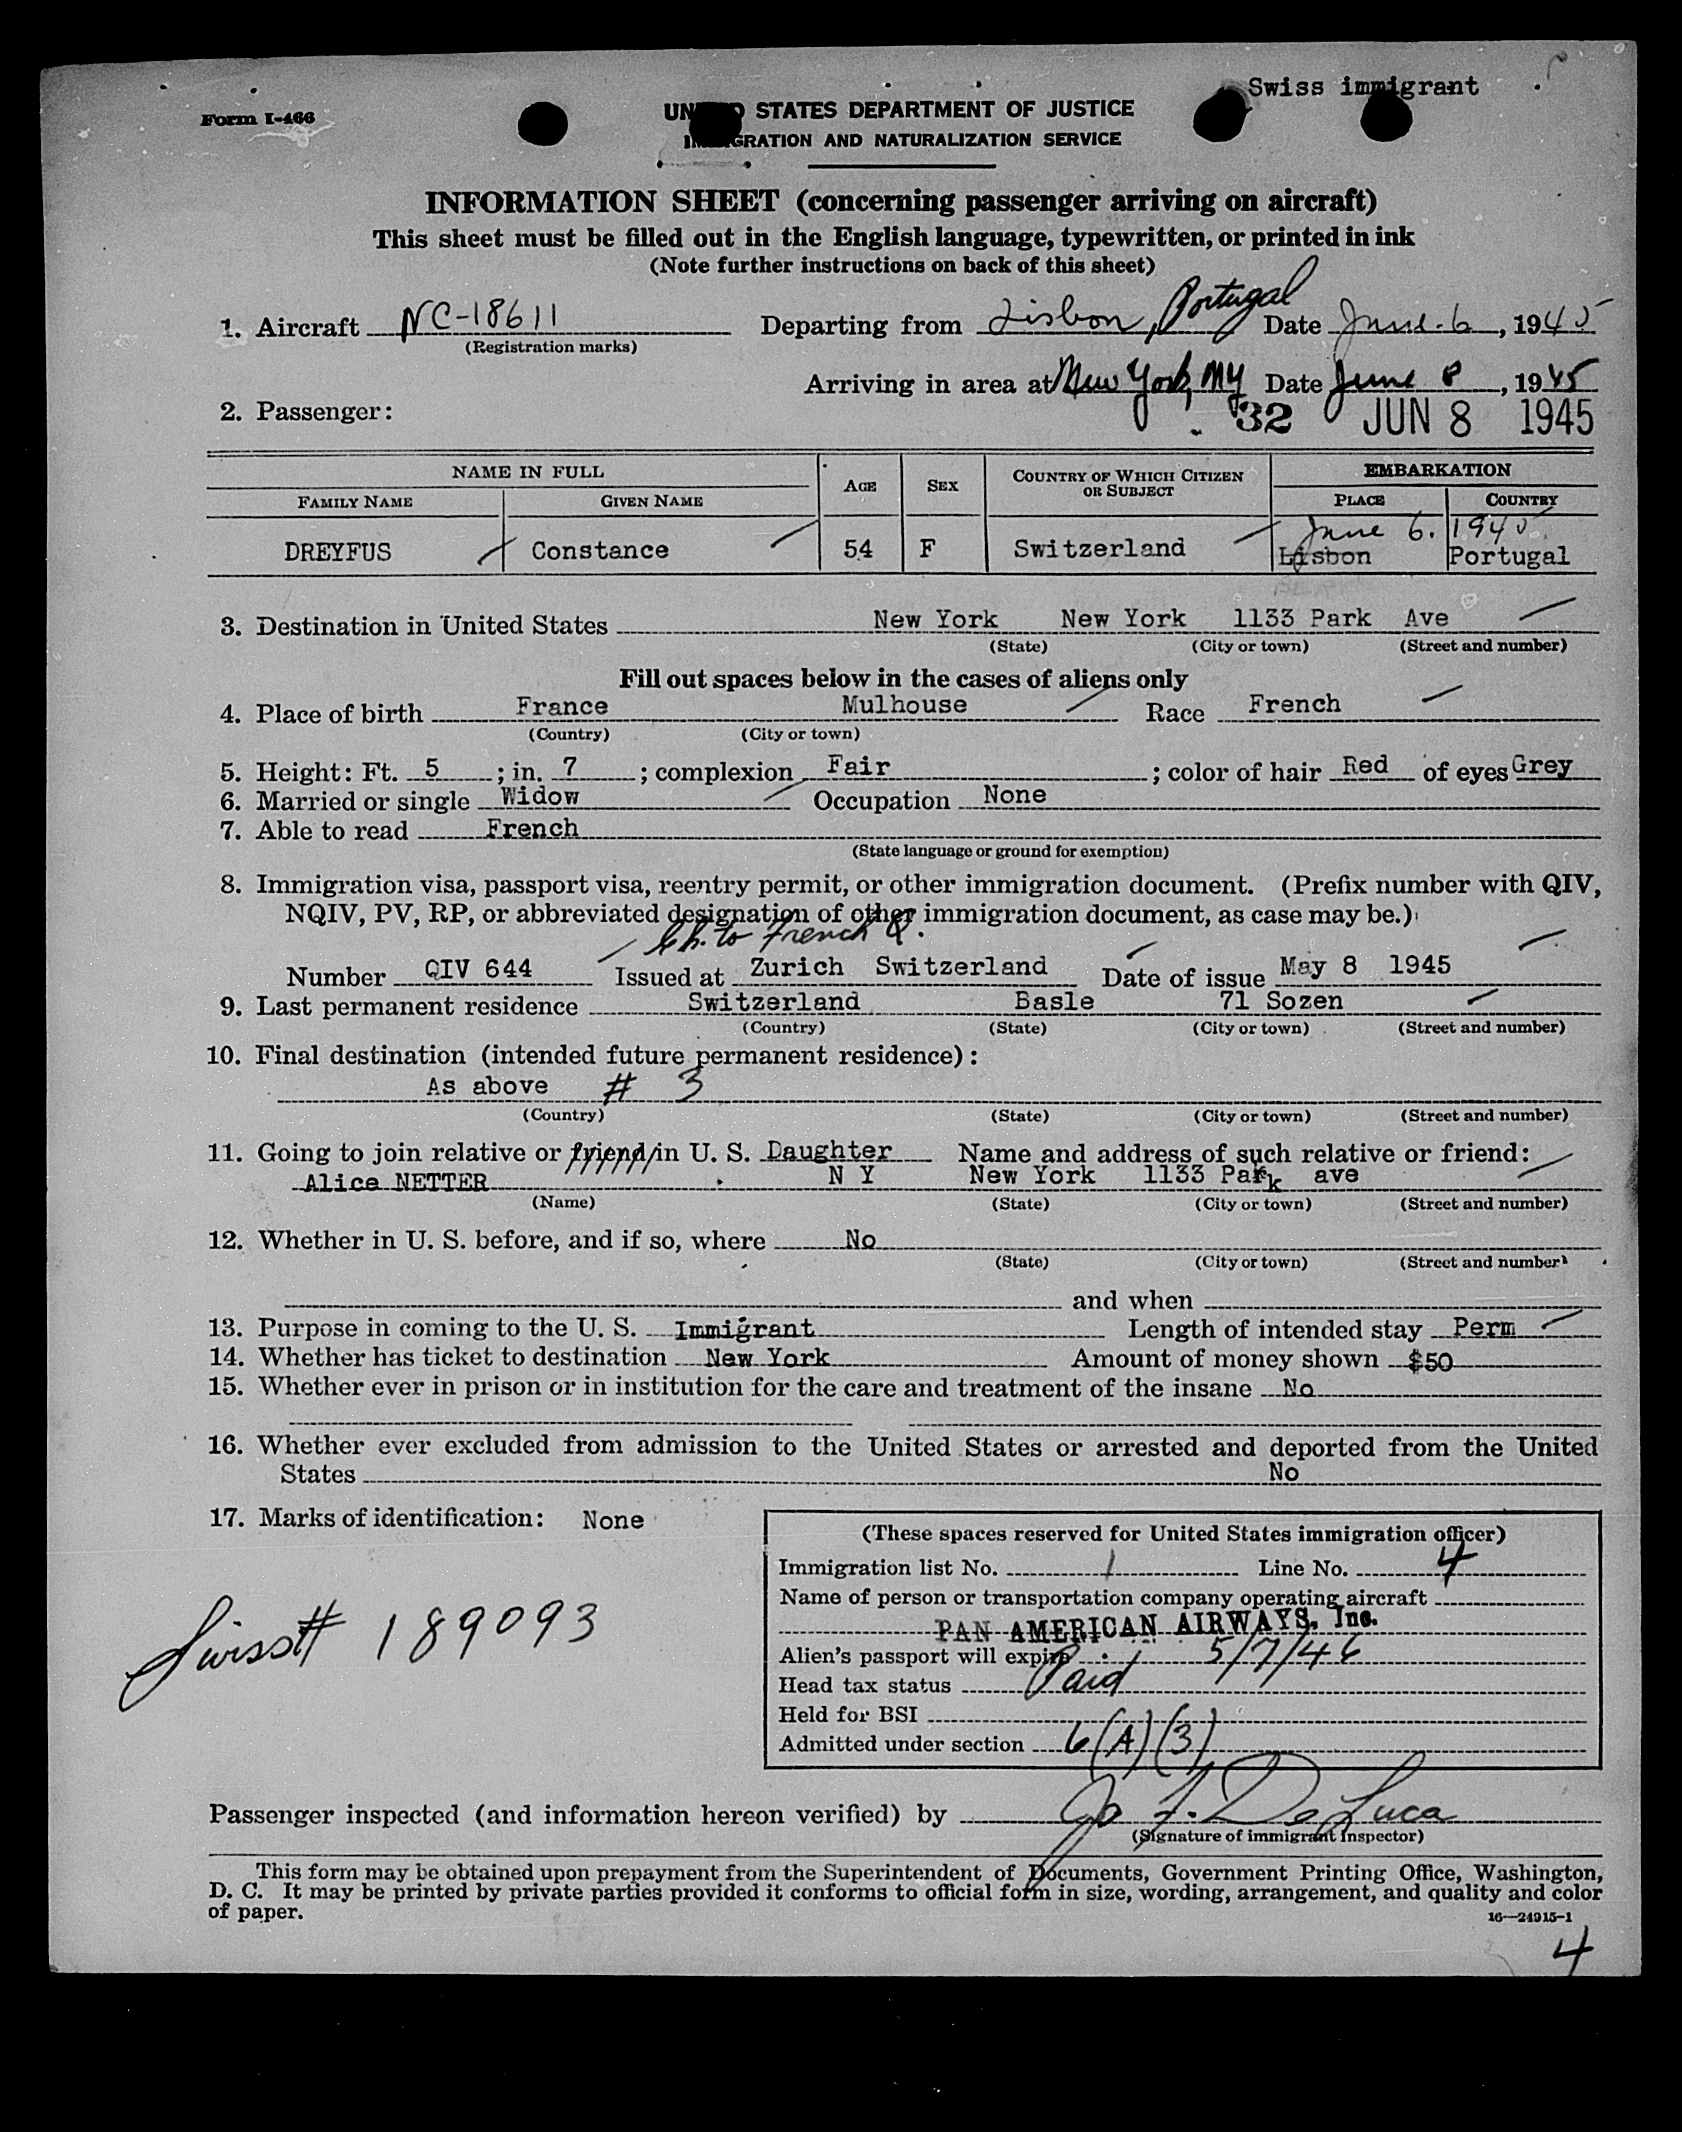 Swiss immigrant
Form I-466
STATES DEPARTMENT OF JUSTICE
AND NATURALIZATION SERVICE
INFORMATION SHEET (concerning passenger arriving on aircraft)
This sheet must be filled out in the English language, typewritten, or printed in ink
(Note further instructions on back of this sheet)
1. Aircraft NC-18611 Departing from Lisbon, Portugal Date June 6, 1945
(Registration marks)
Arriving in area at New York, NY Date June 8, 1945
2. Passenger: 32 JUN 8 1945
NAME IN FULL AGE SEX COUNTRY OF WHICH CITIZEN OR SUBJECT EMBARKATION
FAMILY NAME GIVEN NAME PLACE COUNTRY
June 6. 1945
DREYFUS Constance 54 F Switzerland Lisbon Portugal
3. Destination in United States New York New York 1133 Park Ave
(State) (City or town) (Street and number)
Fill out spaces below in the cases of aliens only
4. Place of birth France Mulhouse Race French
(Country) (City or town)
5. Height: Ft. 5; in. 7; complexion Fair; color of hair Red of eyes Grey
6. Married or single Widow Occupation None
7. Able to read French
(State language or ground for exemption)
8. Immigration visa, passport visa, reentry permit, or other immigration document. (Prefix number with QIV,
NQIV, PV, RP, or abbreviated designation of other immigration document, as case may be.)
Ch. to French Q.
Number QIV 644 Issued at Zurich Switzerland Date of issue May 8 1945
9. Last permanent residence Switzerland Basle 71 Sozen
(Country) (State) (City or town) (Street and number)
10. Final destination (intended future permanent residence):
As above # 3
(Country) (State) (City or town) (Street and number)
11. Going to join relative or friend in U. S. Daughter Name and address of such relative or friend:
Alice NETTER N Y New York 1133 Park ave
(Name) (State) (City or town) (Street and number)
12. Whether in U. S. before, and if so, where No
(State) (City or town) (Street and number)
and when
13. Purpose in coming to the U. S. Immigrant Length of intended stay Perm
14. Whether has ticket to destination New York Amount of money shown $50
15. Whether ever in prison or in institution for the care and treatment of the insane No
16. Whether ever excluded from admission to the United States or arrested and deported from the United
States No
17. Marks of identification: None
(These spaces reserved for United States immigration officer)
Immigration list No. 1 Line No. 4
Name of person or transportation company operating aircraft
PAN AMERICAN AIRWAYS, Inc.
Swiss# 189093
Alien's passport will expire 5/7/46
Head tax status Paid
Held for BSI
Admitted under section 6(A)(3)
Passenger inspected (and information hereon verified) by Jo F. DeLuca
(Signature of immigrant inspector)
This form may be obtained upon prepayment from the Superintendent of Documents, Government Printing Office, Washington,
D. C. It may be printed by private parties provided it conforms to official form in size, wording, arrangement, and quality and color
of paper.
16—24915-1
4